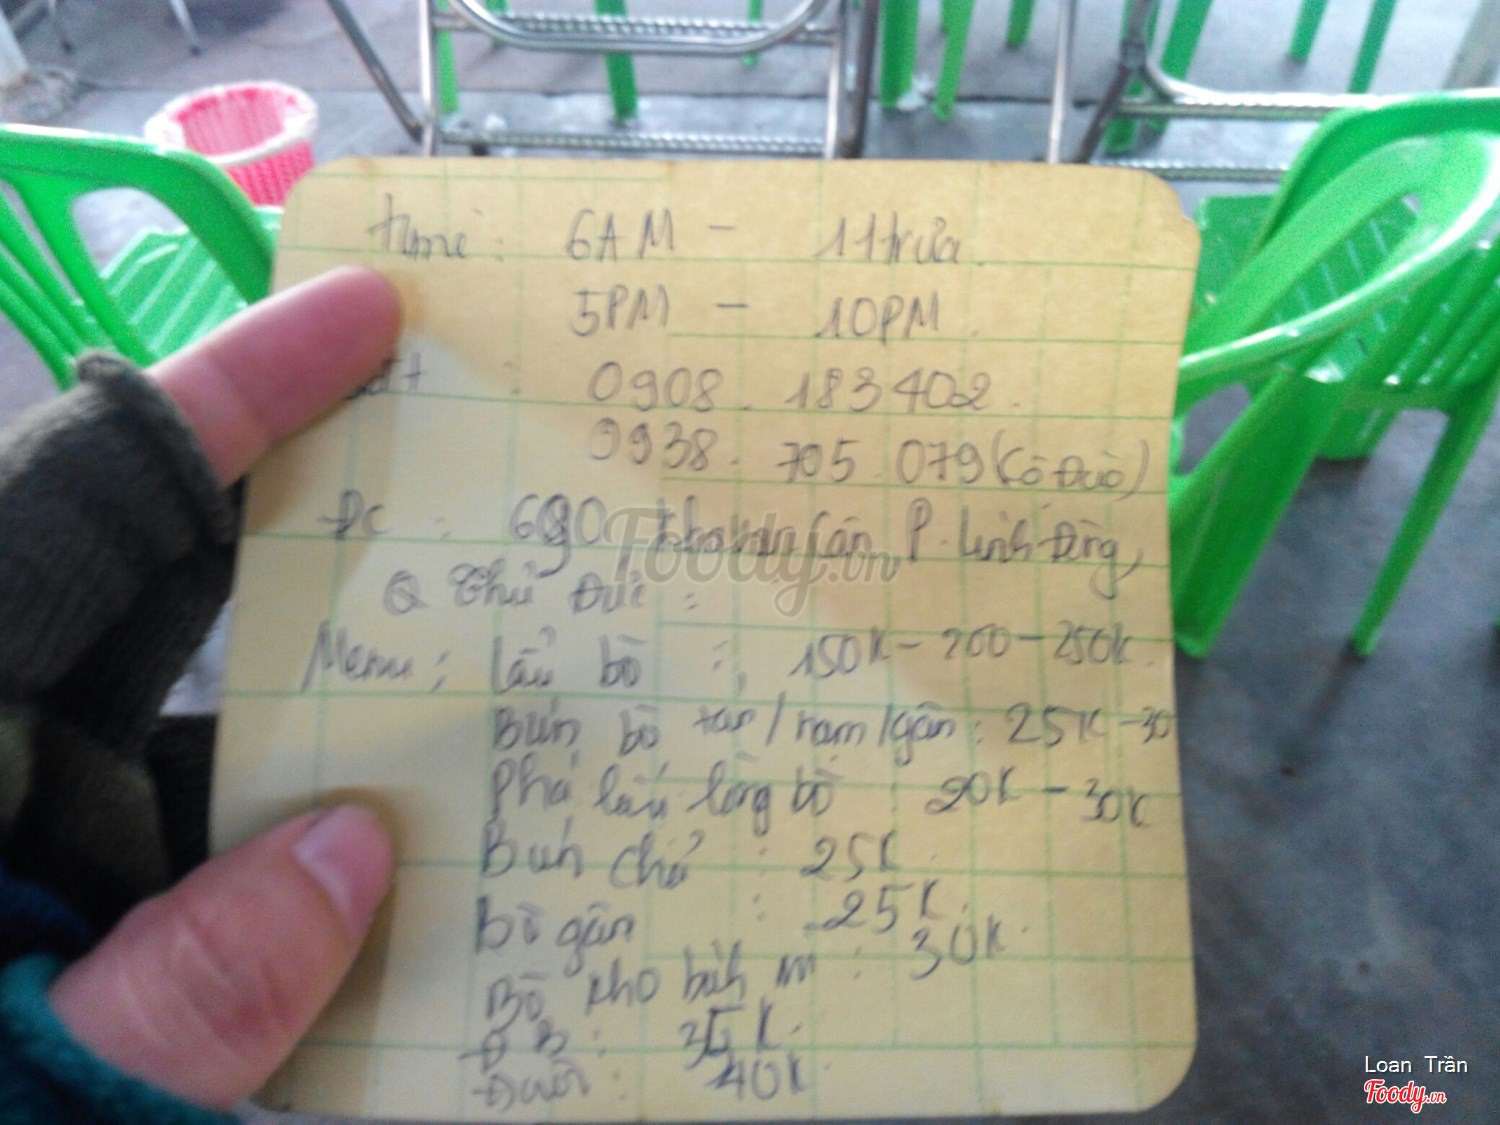 time: 6AM - 11 trưa.
5PM - 10PM.
: 0908.183402.
0938.705.079 (Cô Đuò)
ĐC : 690 Kha Vạn Cân, P. Linh Đông,
Q Thủ Đức :
Menu: Lẩu bò : 150K - 200 - 250K.
Bún bò tái/nạm/gân: 25K - 30
Phá lấu lòng bò : 20K - 30K
Bún chả : 25K.
Bò gân : 25K.
Bò kho bánh mì : 30K.
ĐB : 35K.
Đuôi : 40K.
Foody.vn
Loan Trần
Foody.vn